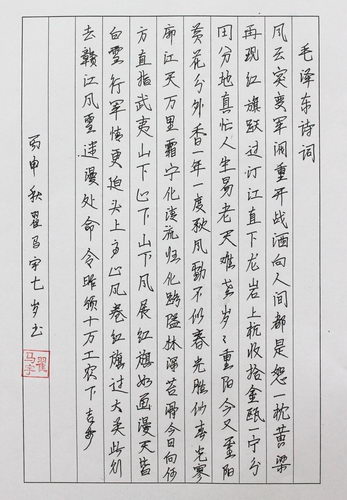 毛泽东诗词
风云突变军阀重开战洒向人间都是怨一枕黄粱
再现红旗跃过汀江直下龙岩上杭收拾金瓯一片分
田分地真忙人生易老天难老岁々重阳今又重阳
黄花分外香一年一度秋风劲不似春光胜似春光寥
廓江天万里霜宁化清流归化路隘林深苔滑今日向何
方直指武夷山下山下山下风展红旗如画漫天皆
白雪行军情更迫头上高山风卷红旗过大关此行
去赣江风雪迷漫处命令昨颁十万工农下吉安
丙申秋翟马宇七岁书
翟马宇